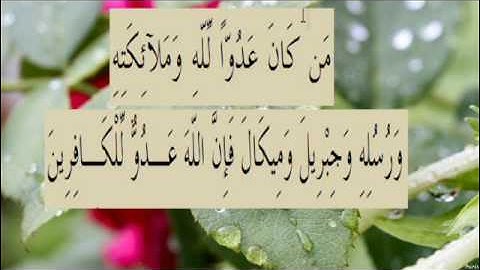 مَن كَانَ عَدُوًّا لِّلّهِ وَمَلآئِكَتِهِ
وَرُسُلِهِ وَجِبْرِيلَ وَمِيكَالَ فَإِنَّ اللّهَ عَـــدُوٌّ لِّلْكَـــافِرِينَ